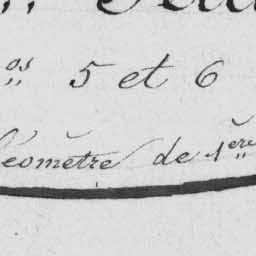 os 5 et 6
Géomètre de 1ère